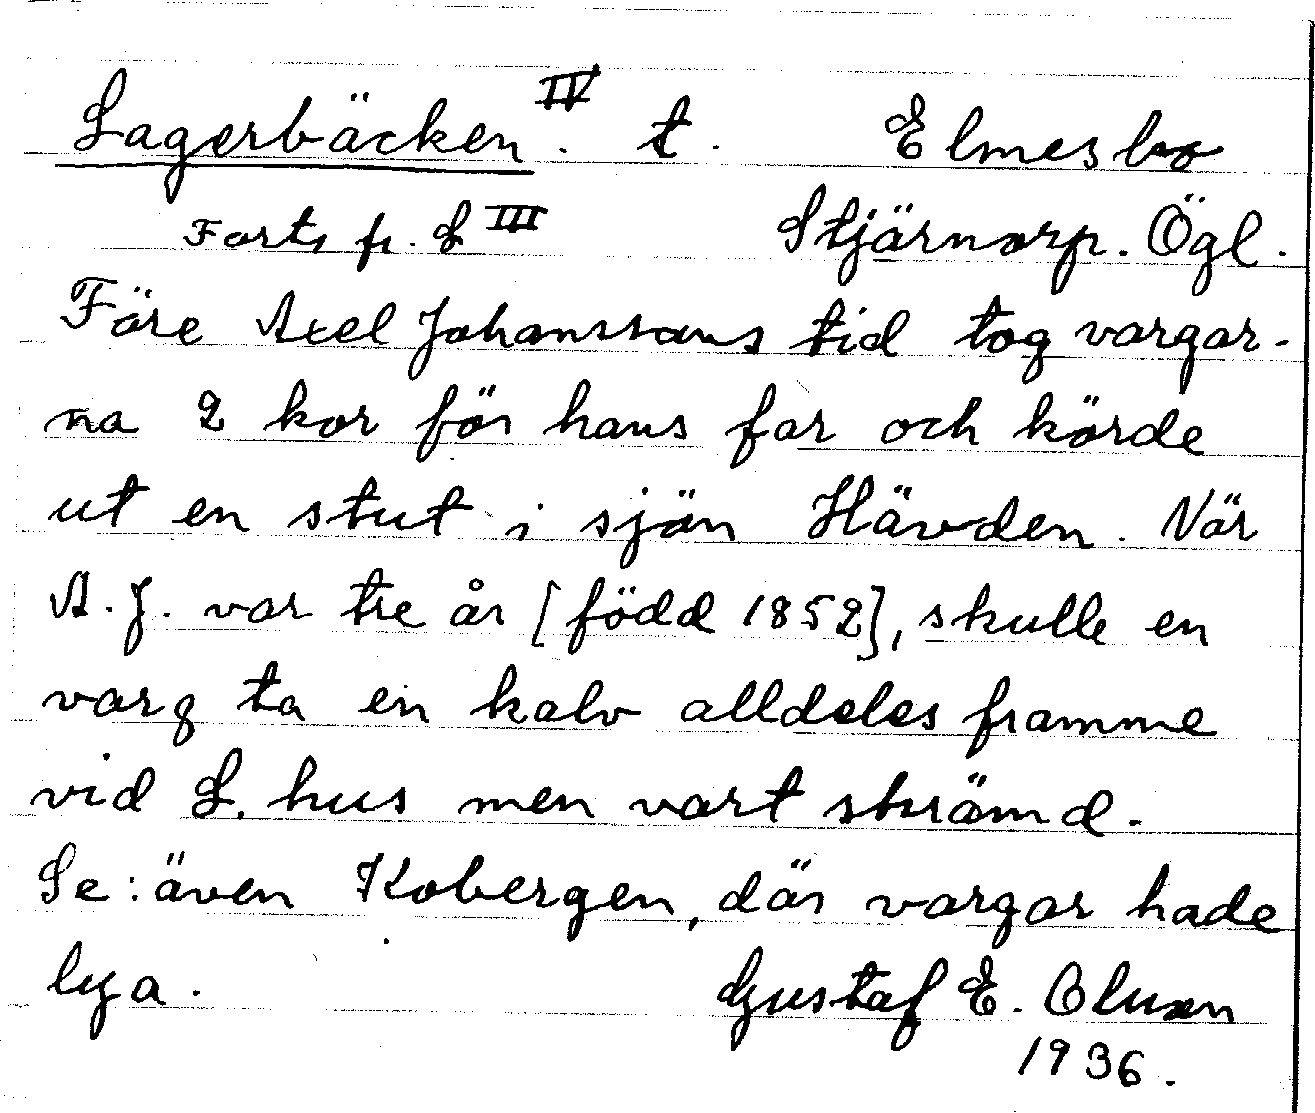 Lagerbäcken IV. t. Elmesbo
Forts fr. L III Stjärnorp. Ögl.
Före Axel Johanssons tid tog vargar-
na 2 kor för hans far och körde
ut en stut i sjön Hävden. När
A. J. var tre år [född 1852], skulle en
varg ta en kalv alldeles framme
vid L. hus men vart skrämd.
Se: även Kobergen, där vargar hade
lya. Gustaf E.
1936.